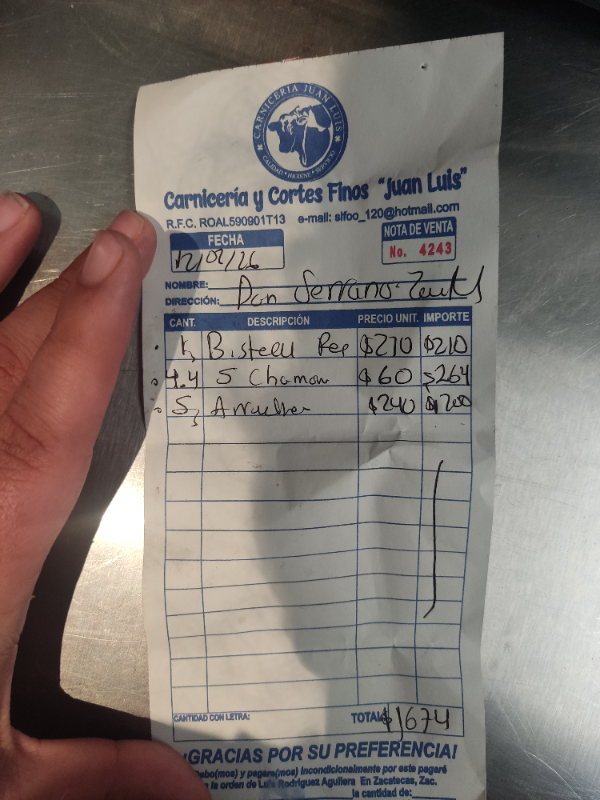 CARNICERÍA JUAN LUIS
CALIDAD • HIGIENE • SERVICIO
Carnicería y Cortes Finos "Juan Luis"
R.F.C. ROAL590901T13 e-mail: sifoo_120@hotmail.com
FECHA
NOTA DE VENTA
No. 4243
NOMBRE:
DIRECCIÓN: Don Serrano
CANT. DESCRIPCIÓN PRECIO UNIT. IMPORTE
Bisteck Res $210 $210
4.4 S Chamon $60 $264
5 Arrachera $240 $1200
CANTIDAD CON LETRA: TOTAL $1674
¡GRACIAS POR SU PREFERENCIA!
Debo(mos) y pagaré(mos) incondicionalmente por este pagaré
la orden de Luis Rodríguez Aguilera En Zacatecas, Zac.
la cantidad de: